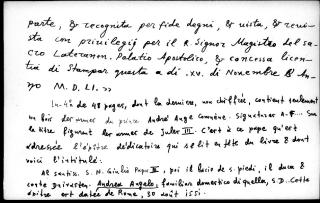 parte, & recognita per fide degni, & vista, & revi-
sta con privilegij per il R. Signor Magistro del sa-
cro Lateranen. Palatio Apostolico, & concessa licen-
tia di stampar questa a di .xv. di Novembre & An-
no M.D.LI. »
In-4° de 48 pages, dont la dernière, non chiffrée, contient seulement
un bois des armes du prince André Ange Comnène. Signatures A-F... Sur
le titre figurent les armes de Jules III. C'est à ce pape qu'est
adressée l'épître dédicatoire qui se lit en tête du livre & dont
voici l'intitulé:
Al santiss. S. N. Giulio Papa III, poi il bacio de s. piedi, il duca &
conte Drivasten. Andrea Angelo, familiar domestico di quella, S. D. Cette
épître est datée de Rome, 30 août 1551.